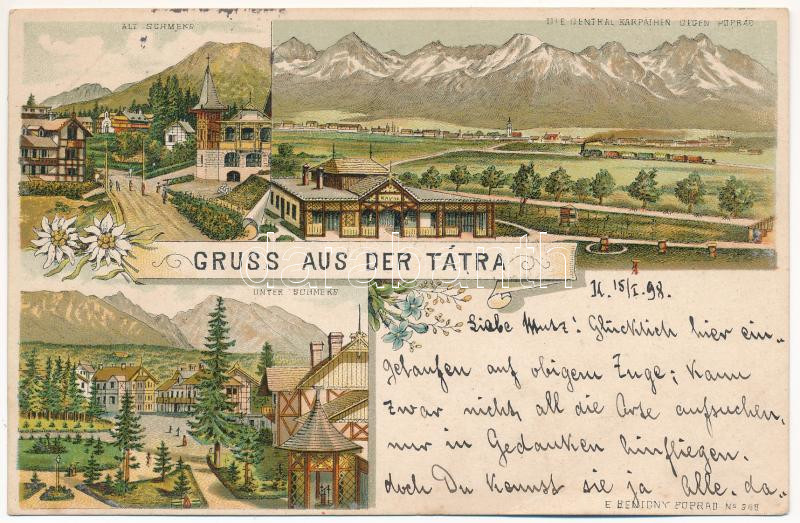 ALT SCHMEKS
DIE CENTRAL KARPATHEN GEGEN POPRAD
GRUSS AUS DER TÁTRA
darabanth.com
UNTER SCHMEKS
18/I. 98.
Liebe Mutz! Glücklich hier ein-
gelaufen auf obigem Zuge; kann
zwar nicht all die Orte aufsuchen,
nur in Gedanken hinfliegen.
doch Du kennst sie ja alle, da-
E BENIGNY POPRAD No 368